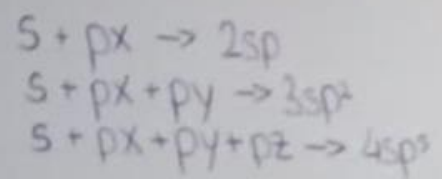 S + px → 2sp
S + px + py → 3sp²
S + px + py + pz → 4sp³